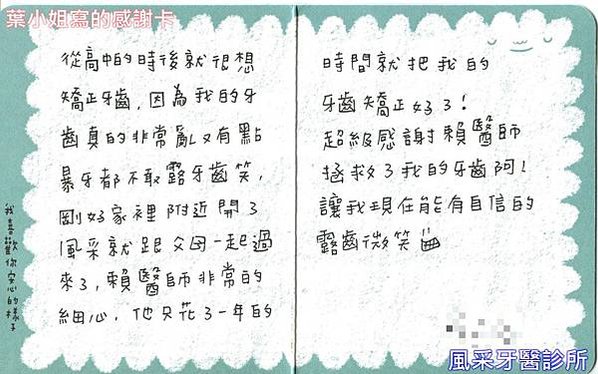 葉小姐寫的感謝卡
從高中的時後就很想
矯正牙齒，因為我的牙
齒真的非常亂又有點
暴牙都不敢露牙齒笑，
剛好家裡附近開了
風采就跟父母一起過
來了，賴醫師非常的
細心，他只花了一年的
我喜歡你安心的樣子
時間就把我的
牙齒矯正好了！
超級感謝賴醫師
拯救了我的牙齒阿！
讓我現在能有自信的
露齒微笑
風采牙醫診所